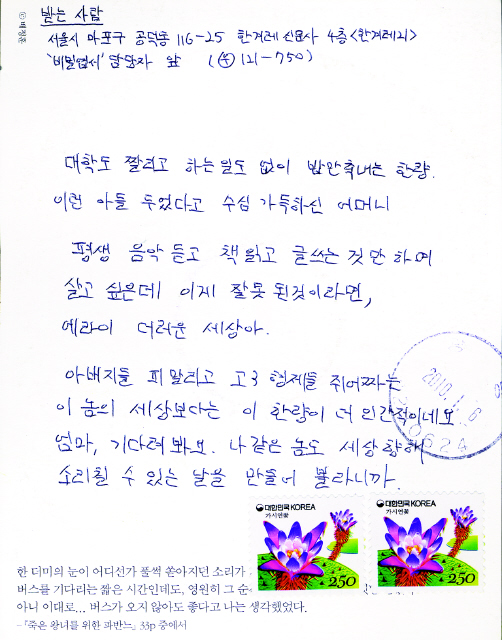 ⓒ배정훈
받는 사람
서울시 마포구 공덕동 116-25 한겨레신문사 4층 <한겨레21>
'비밀엽서' 담당자 앞 (㉾ 121-750)
대학도 짤리고 하는 일도 없이 밥만 축내는 한량.
이런 아들 두었다고 수심 가득하신 어머니
평생 음악 듣고 책 읽고 글쓰는 것만 하며
살고 싶은데 이게 잘못 된것이라면,
에라이 더러운 세상아.
아버지들 피 말리고 고3 형제들 쥐어짜는
이 놈의 세상보다는 이 한량이 더 인간적이네요
엄마, 기다려봐요. 나 같은 놈도 세상 향해
소리칠 수 있는 날을 만들어 볼라니까.
2010. 1. 6
대한민국 KOREA
가시연꽃
250
대한민국 KOREA
가시연꽃
250
한 더미의 눈이 어디선가 풀썩 쏟아지던 소리가
버스를 기다리는 짧은 시간인데도, 영원히 그 순
아니 이대로... 버스가 오지 않아도 좋다고 나는 생각했었다.
- 『죽은 왕녀를 위한 파반느』 33p 중에서